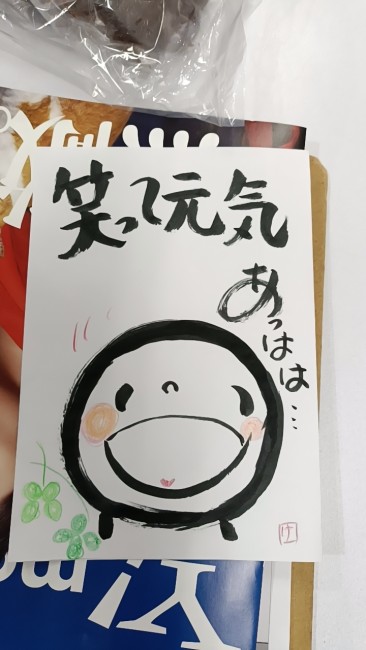 笑って元気
あっはは…
け